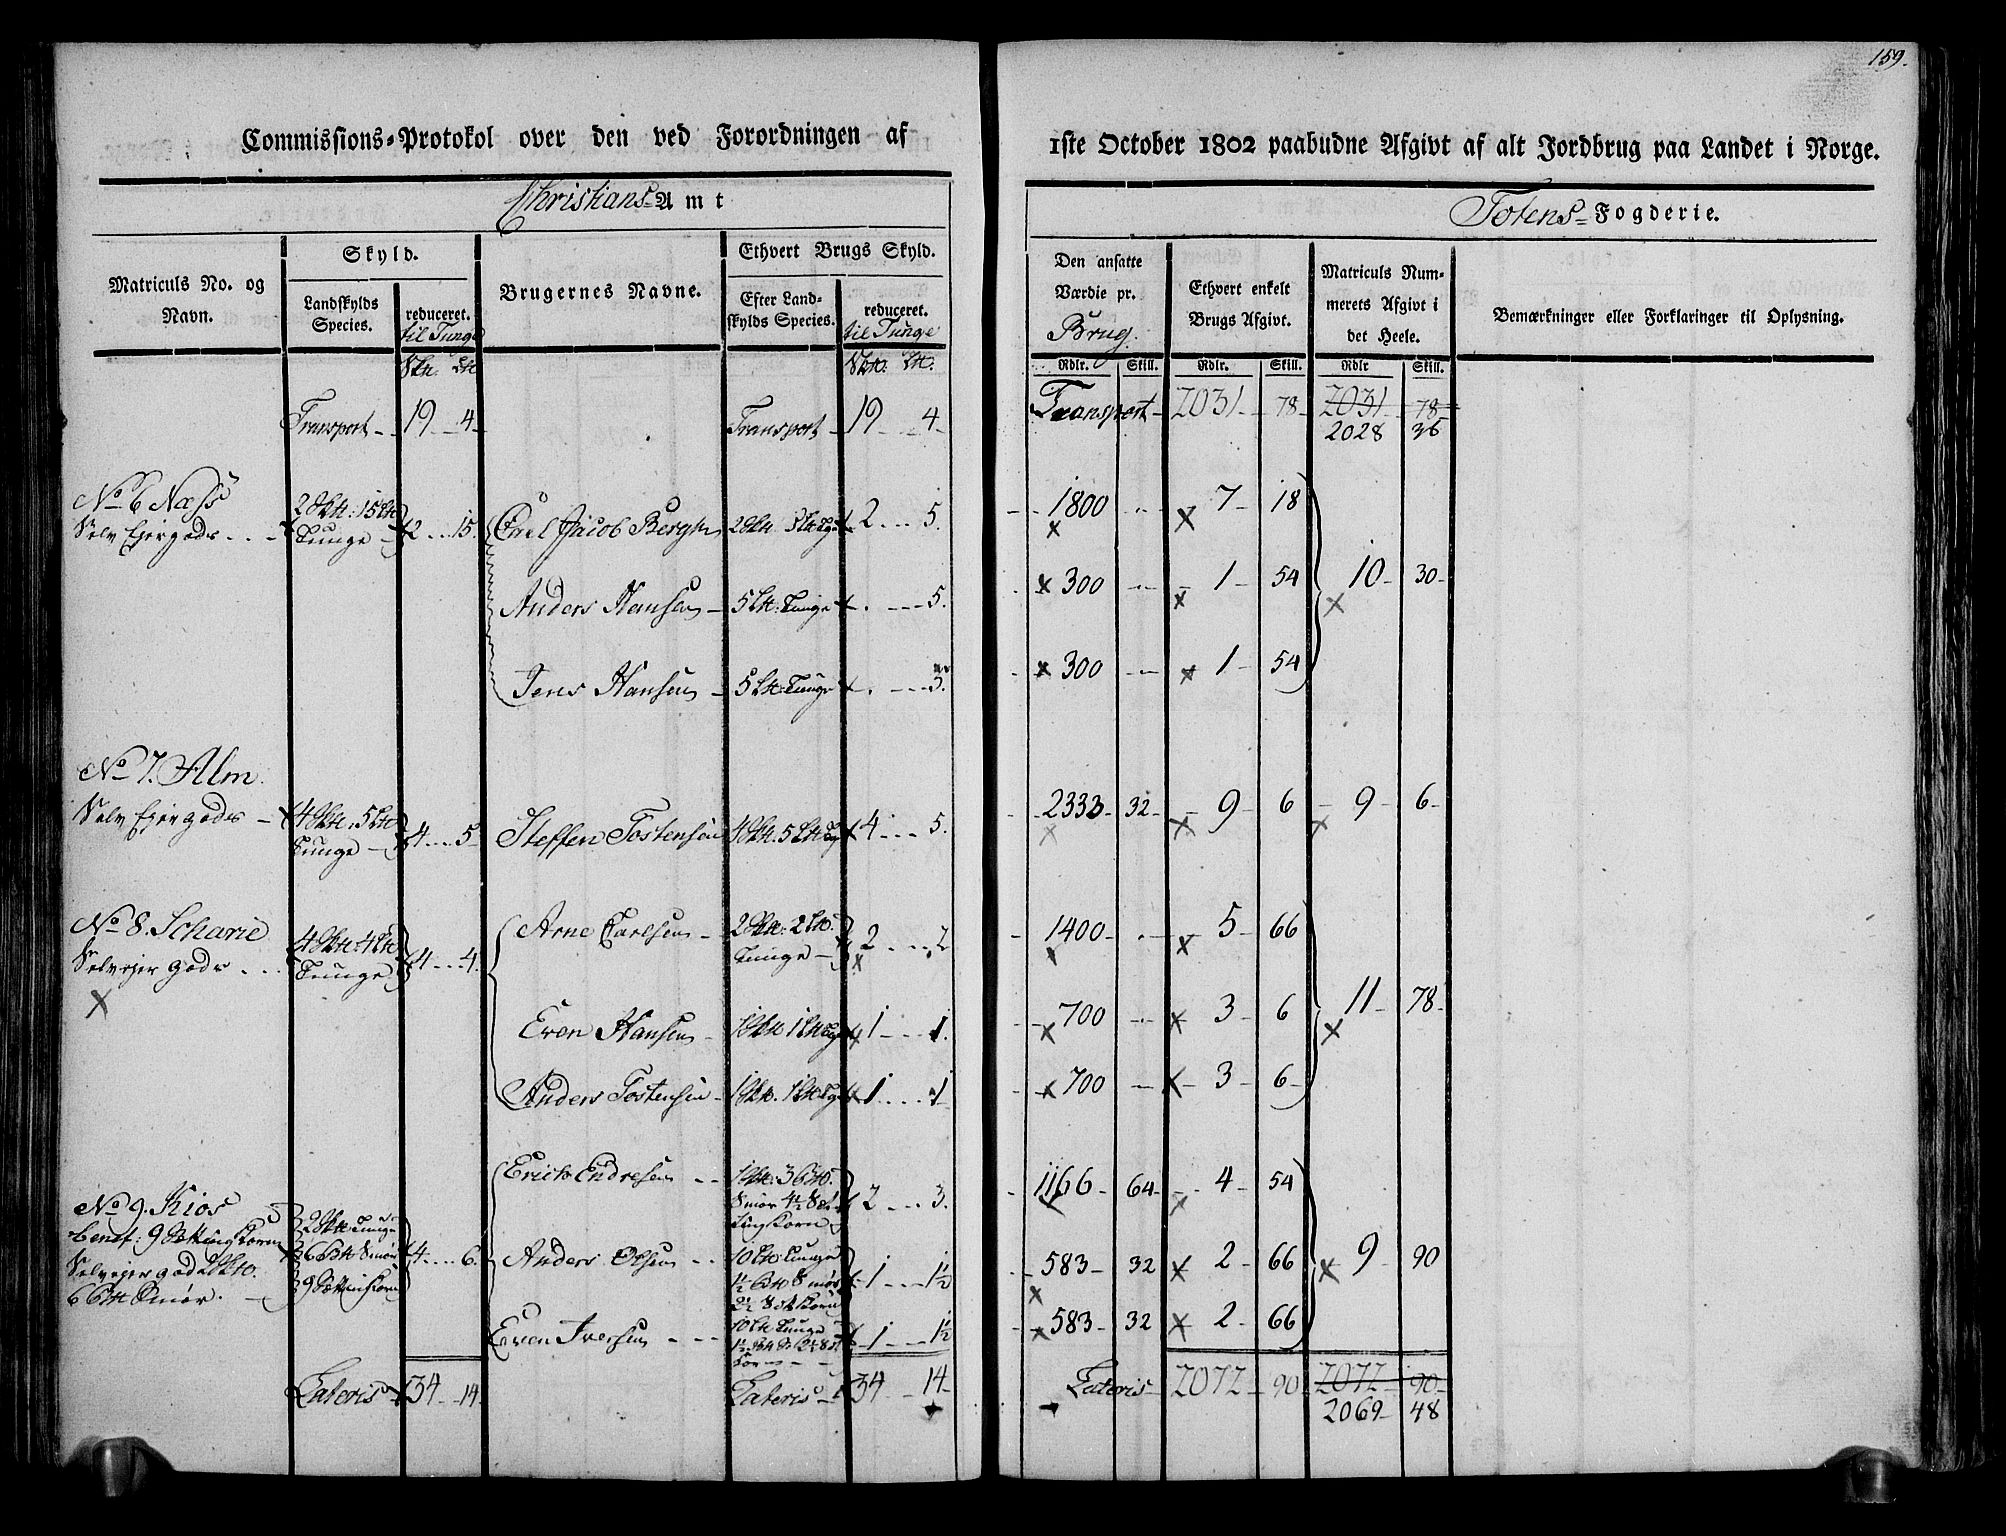 159.
Commissions-Protokol over den ved Forordningen af
1ste October 1802 paabudne Afgivt af alt Jordbrug paa Landet i Norge.
Christians-Amt
Totens-Fogderie.
Matriculs No. og Navn.
Skyld.
Landskylds Species.
reduceret. til Tunge
Brugernes Navne.
Ethvert Brugs Skyld.
Efter Landskylds Species.
reduceret. til Tunge
Den ansatte Værdie pr. Brug.
Ethvert enkelt Brugs Afgivt.
Matriculs Nummerets Afgivt i det Heele.
Bemærkninger eller Forklaringer til Oplysning.
Rdlr. Skill. Rdlr. Skill. Rdlr Skill.
Transport 19 4 Transport 19 4 Transport 2031 78 2031 78
2028 36
No 6 Næss
Selv Eiergods 2 15 Tunge 2 15. Carl Jacob Bergh 2 5. 1800 7 18
Anders Hansen 5 Tunge 5. 300 1 54 10 30
Jens Hansen 5 Tunge 5. 300 1 54
No 7. Alm.
Selv Eiergods 4 5 Tunge 4 5 Steffen Tostensen 4 5 4 5. 2333 32 9 6 9 6
No 8. Scharie
Selveiergods 4 4 Tunge 4 4. Arne Carlsen 2 2 Tunge 2 2 1400 5 66
Even Hansen 1 1 1 1. 700 3 6 11 78
Anders Tostensen 1 1 1 1 700 3 6
Erich Endresen 2 3. 1166 64 4 54
No 9. Kios
Benef: 9 Sættingkorn
4 6. Anders Olsen 10 Tunge 1 1½ 583 32 2 66 9 90
6 Smør.
Even Iversen 10 Tunge 1 1½ 583 32 2 66
Lateris 34 14. Lateris 34 14 Lateris 2072 90 2072 90
2069 48